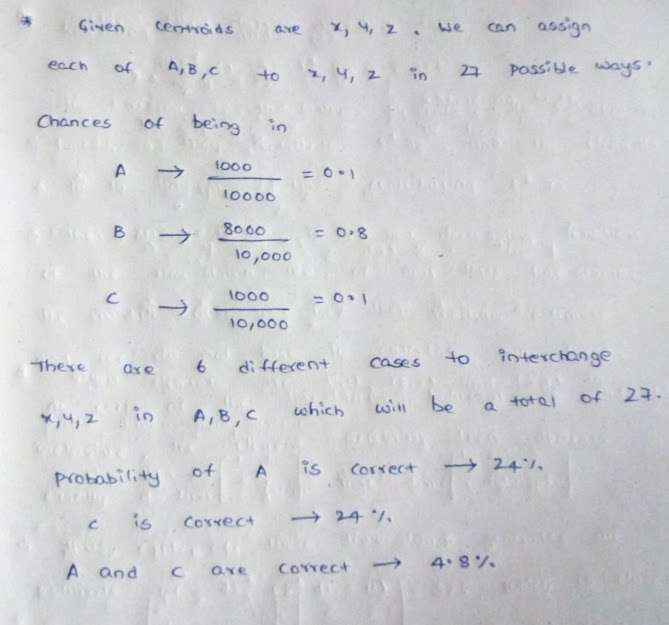 * Given centroids are x, y, z. We can assign
each of A, B, C to x, y, z in 27 possible ways.
Chances of being in
A → 1000 / 10000 = 0.1
B → 8000 / 10,000 = 0.8
C → 1000 / 10,000 = 0.1
There are 6 different cases to interchange
x, y, z in A, B, C which will be a total of 27.
probability of A is correct → 24%.
C is correct → 24%.
A and C are correct → 4.8%.